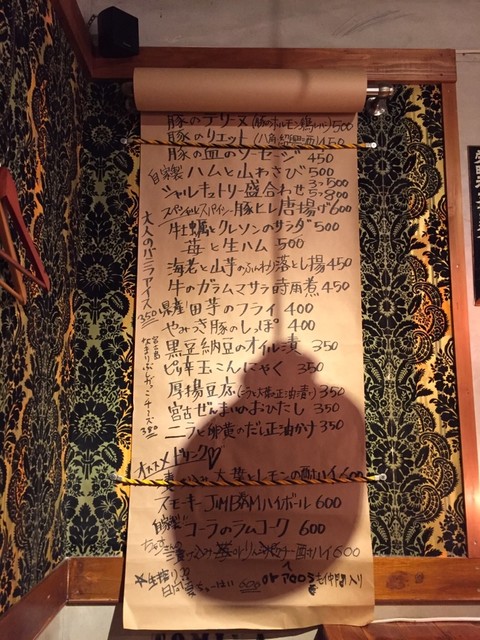 豚のテリーヌ(豚のホルモン鶏レバー)500
豚のリエット(八角紹興酒)450
豚の血のソーセージ 450
自家製 ハムと山わさび 500
シャルキュトリー盛合わせ 3つ500 5つ800
スペシャルスパイシー豚ヒレ唐揚げ600
牡蠣とクレソンのサラダ 500
苺と生ハム 500
海老と山芋のふんわり落とし揚 450
牛のガラムマサラ時雨煮 450
県産田芋のフライ 400
やみつき豚のしっぽ 400
黒豆納豆のオイル漬 350
ピリ辛玉こんにゃく 350
厚揚豆腐 350
宮古ぜんまいのおひたし 350
ニラと卵黄のだし正油かけ 350
大人のバニラアイス 350
なまりぶしとチーズ 380
オススメドリンク♡
大葉とレモンの酎ハイ 600
スモーキーJIMBEAMハイボール 600
自家製 コーラのラムコーク 600
酎ハイ 600
★生搾り
も仲間入り